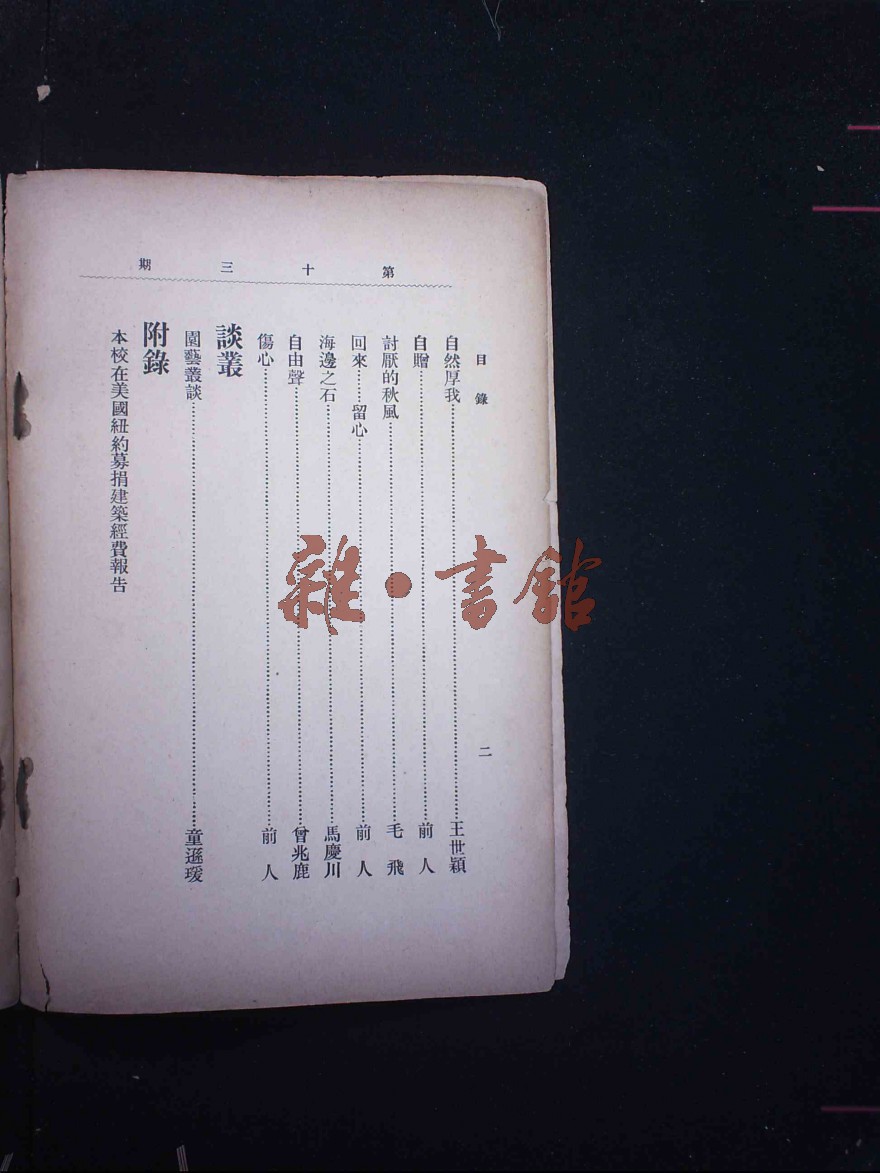 第十三期
目錄
二
自然厚我……王世穎
自贈……前人
討厭的秋風……毛飛
回來……留心……前人
海邊之石……馬慶川
自由聲……曾兆鹿
傷心……前人
談叢
園藝叢談……童遜瑗
附錄
本校在美國紐約募捐建築經費報告
雜·書館